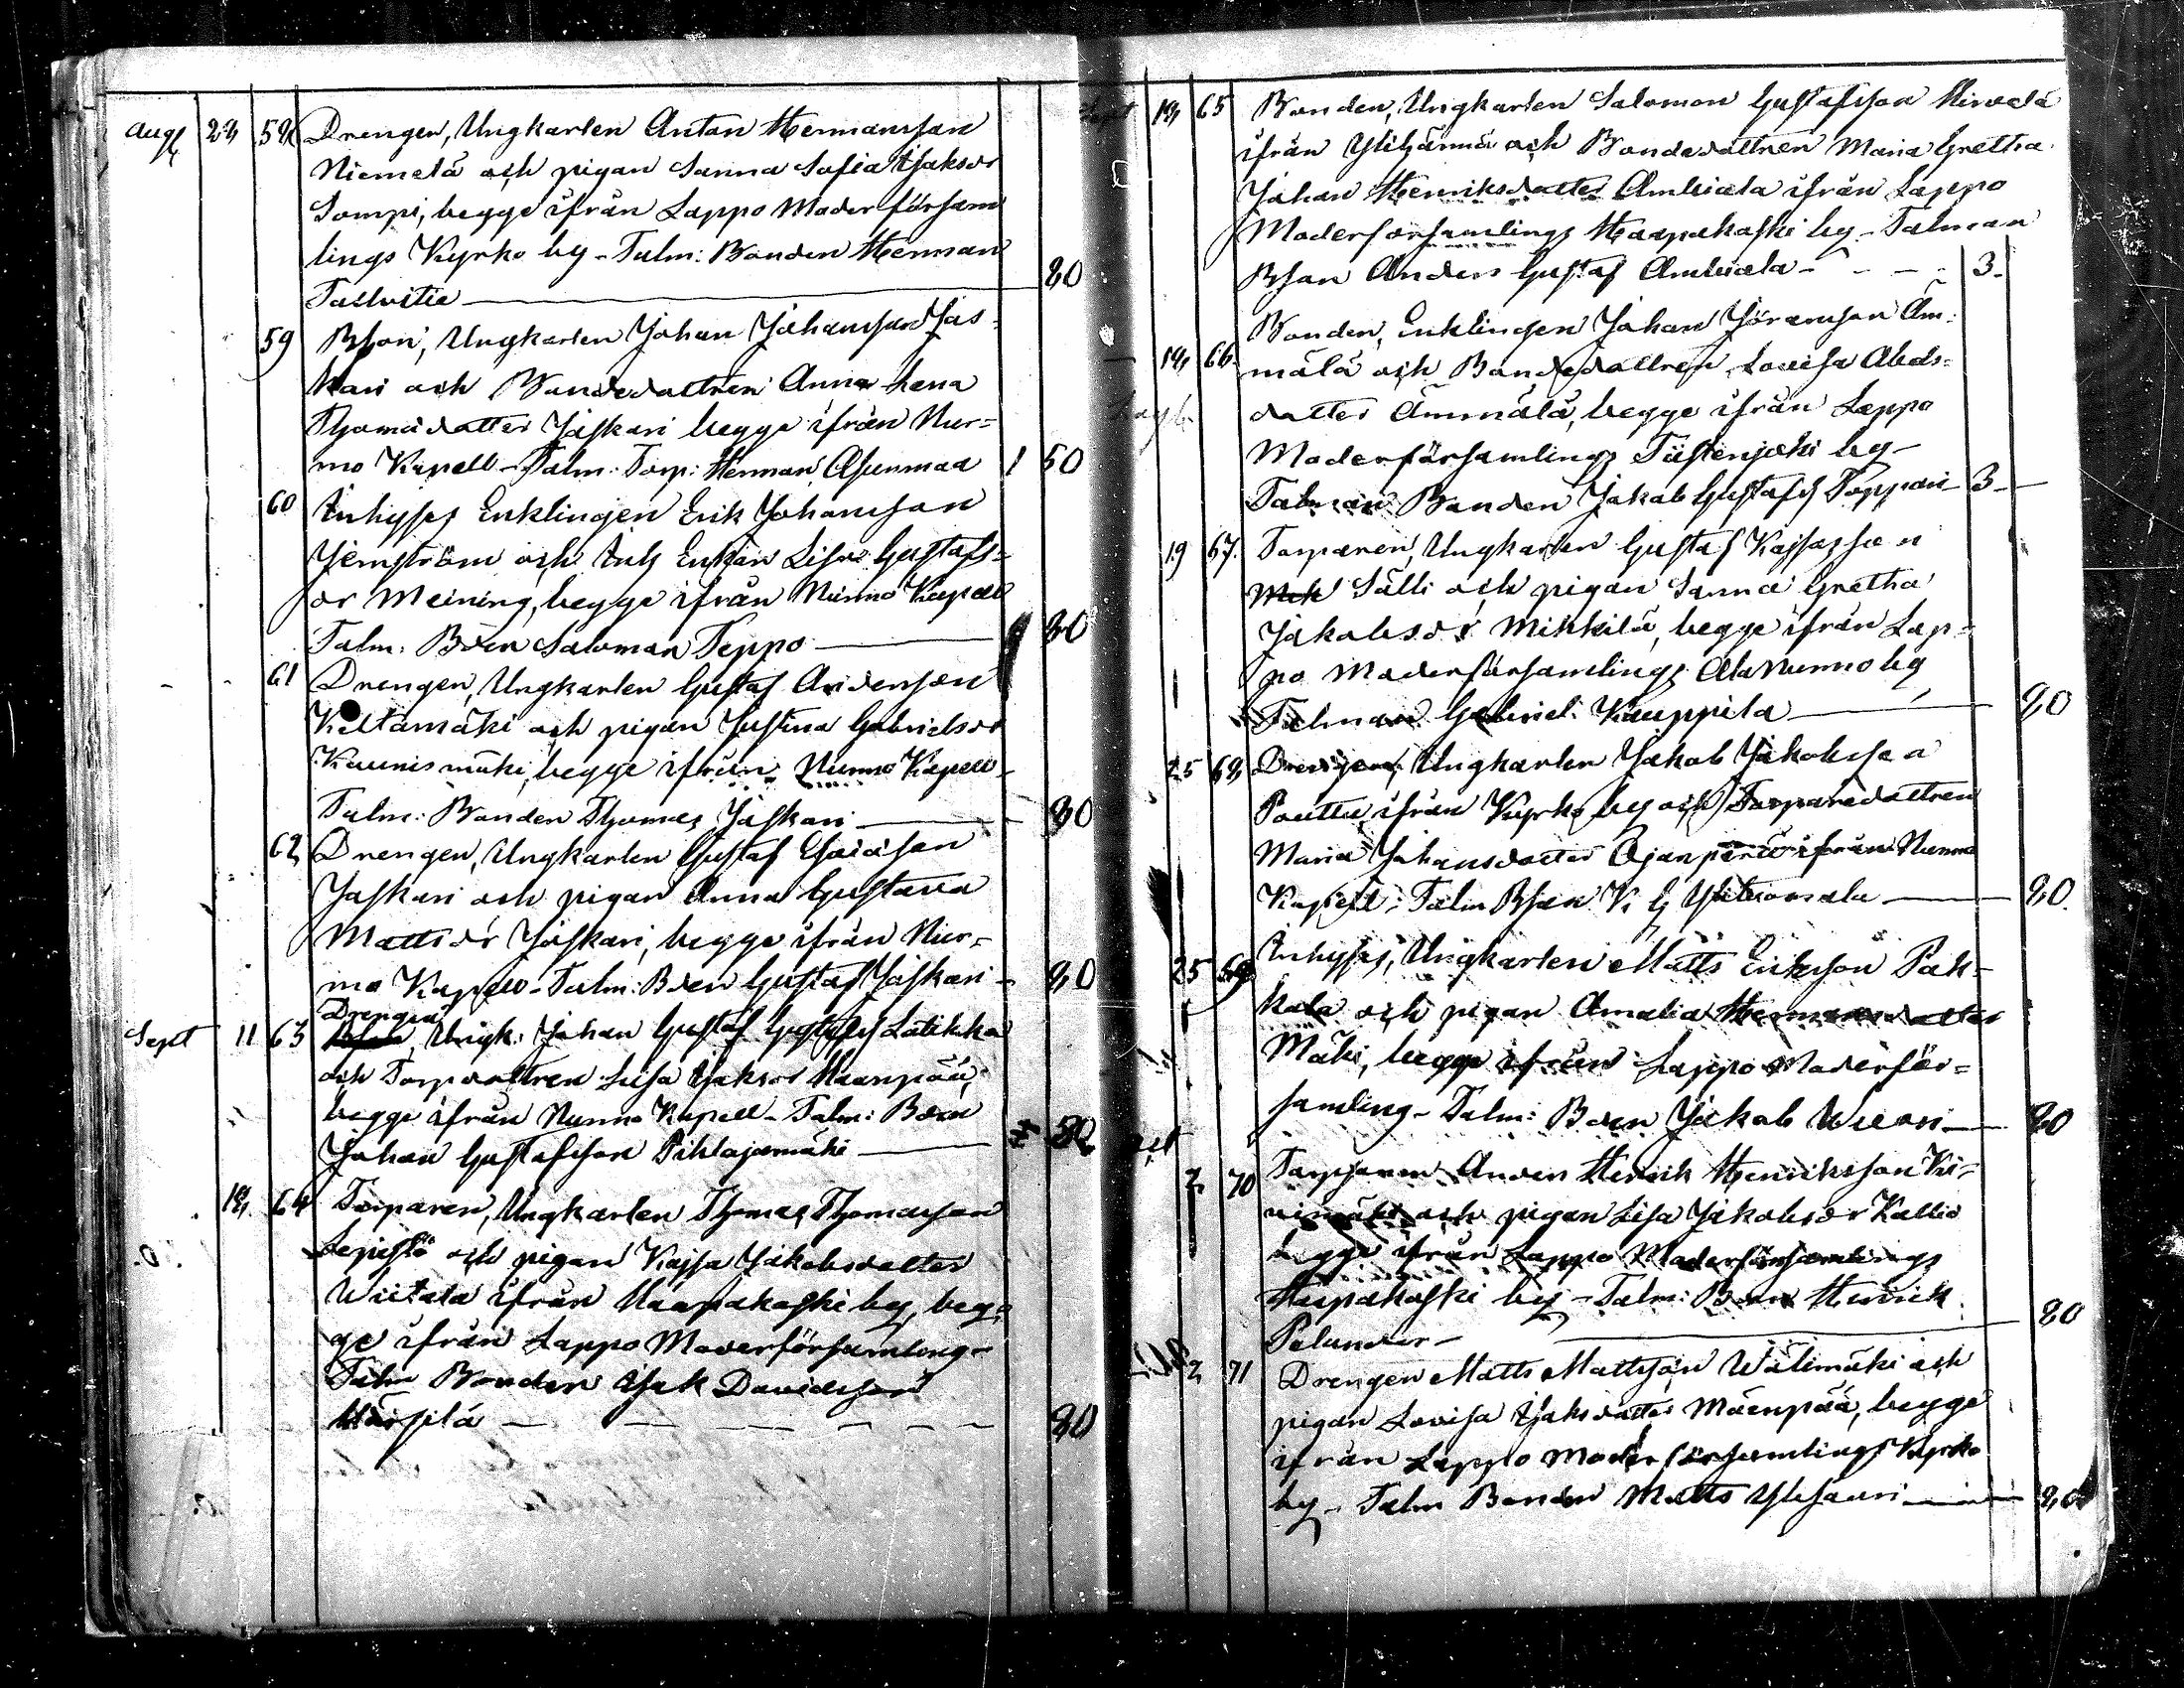 Aug 28 58 Drengen, Ungkarlen Antan Hermansson
Niemelä och pigan Sanna Sofia Isaksdr
Sompi, begge ifrån Lappo Moderförsam
lings Kyrko by - Talm: Bonden Herman
Taslvitie 80
59 Bson, Ungkarlen Johan Johansson Jas-
kari och Bondedottren Anna Lena
Thomædotter Jaskari begge ifrån Nur=
mo Kapell - Talm: Torp: Herman Asunmaa 1 50
60 Inhysses Enklingen Erik Johansson
Jernström och Inh Enkan Lisa Gustafs=
dr Meining, begge ifrån Nurmo Kapell
Talm: Bden Saloman Teppo 80
61 Drengen, Ungkarlen Gustaf Andersson
Keltamäki och pigan Justina Gabrielsdr
Kaunismäki, begge ifrån Nurmo Kapell -
Talm: Bonden Thomas Jaskari 80
62 Drengen, Ungkarlen Gustaf Esaiasson
Jaskari och pigan Anna Gustava
Mattsdr Jaskari, begge ifrån Nur=
mo Kapell - Talm: Bden Gustaf Jaskari - 80
Drengen
Sept 11 63 Ungk: Johan Gustaf Gustafss Latikka
och Torpdottren Lisa Isaksdr Haanpää,
begge ifrån Nurmo Kapell - Talm: Bden
Johan Gustafsson Pihlajamäki
18 64 Torparen, Ungkarlen Thomas Thomasson
Lepistö och pigan Kajsa Jakobsdotter
Wiitala ifrån Haapakoski by, beg-
ge ifrån Lappo Moderförsamling -
Talm Bonden Isak Davidsson
Härsilä 80
Sept 18 65 Bonden, Ungkarlen Salomon Gustafsson Hirvelä
ifrån Ylihärmä och Bondedottren Maria Gretha
Johan Henriksdotter Ambiala ifrån Lappo
Moderforsamlings Haapakoski by - Talman
Bson Anders Gustaf Ambiala - 3 -
Bonden, Enklingen Johan Jöransson Äm-
18 66 mälä och Bondedottren Lovisa Abels-
dotter Ämmälä, begge ifrån Lappo
Moderförsamlings Tiistenjoki by -
Talman Bonden Jakob Gustafss Toppari 3 -
19 67. Torparen, Ungkarlen Gustaf Kajsasson
Sälli och pigan Sanna Gretha
Jakobsdr Mikkilä, begge ifrån Lap=
po Moderförsamlings Ala Nurmo by
Talman Gabriel Kauppila 80
25 68 Drengen, Ungkarlen Jakob Jakobsson
Pouttu ifrån Kyrko by och Torparedottren
Maria Johansdotter Ojanperä ifrån Nurmo
Kapell - Talm Bson K. G Ylituomala 80.
25 69 Inhysses, Ungkarlen Matts Eriksson Pak-
kala och pigan Amalia Hermansdotter
Mäki, begge ifrån Lappo Moderför=
samling - Talm: Bden Jakob Wuori 80
Oct
2 70 Torparen Anders Henrik Henriksson Ki-
vimäki och pigan Lisa Jakobsdr Kallio
begge ifrån Lappo Moderförsamlings
Haapakoski by - Talm: Bden Henrik
Pelander - 80
2 71 Drengen Matts Mattsson Wälimäki och
pigan Lovisa Isaksdotter Mäenpää, begge
ifrån Lappo Moderförsamlings Kyrko
by - Talm Bonden Matts Ylisauri 80